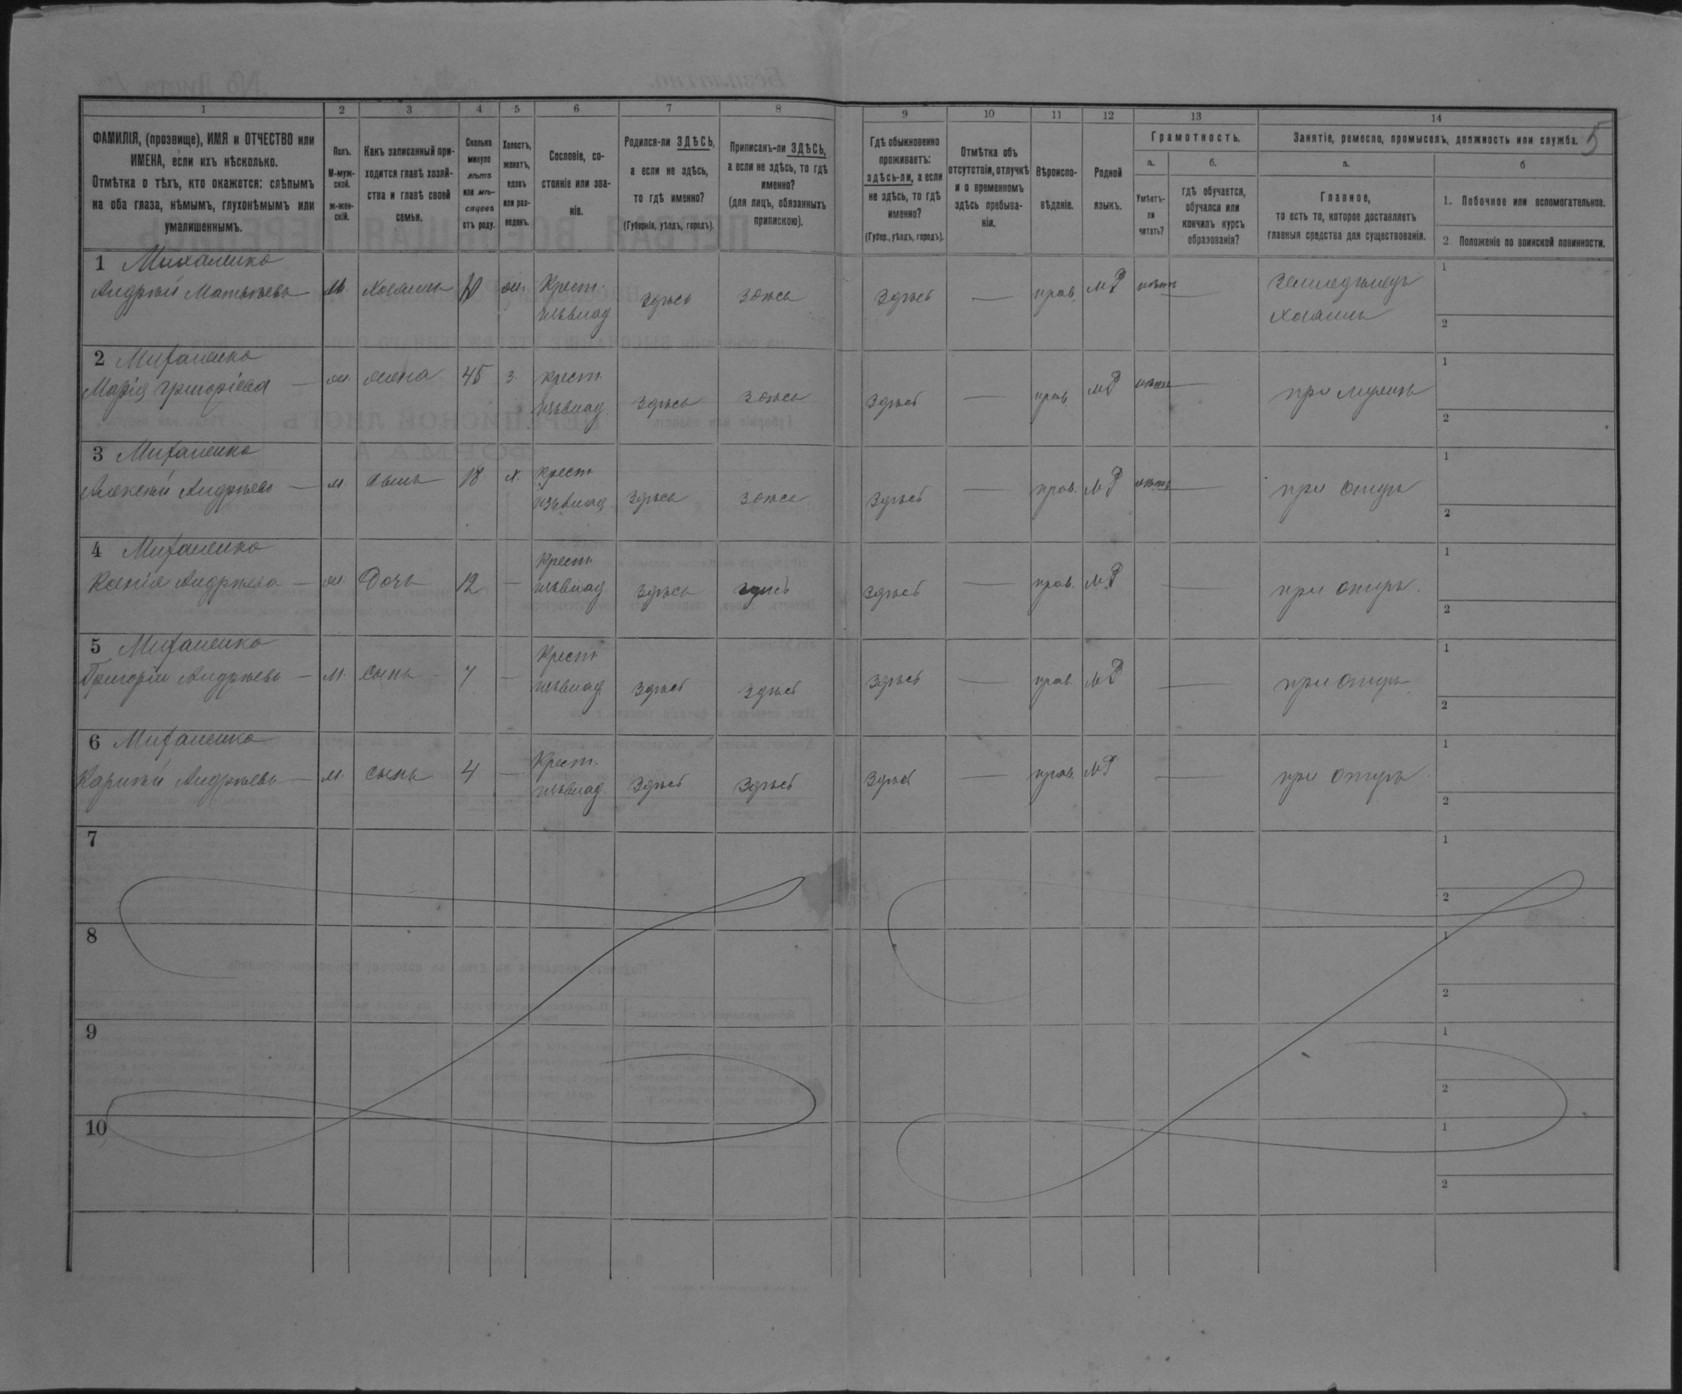 5
1 2 3 4 5 6 7 8 9 10 11 12 13 14
ФАМИЛІЯ, (прозвище), ИМЯ и ОТЧЕСТВО или
ИМЕНА, если ихъ нѣсколько.
Отмѣтка о тѣхъ, кто окажется: слѣпымъ
на оба глаза, нѣмымъ, глухонѣмымъ или
умалишеннымъ.
Полъ.
М-муж-
ской.
ж-жен-
скій.
Какъ записанный при-
ходится главѣ хозяй-
ства и главѣ своей
семьи.
Сколько
минуло
лѣтъ
или мѣ-
сяцевъ
отъ роду.
Холостъ,
женатъ,
вдовъ
или раз-
веденъ.
Сословіе, со-
стояніе или зва-
ніе.
Родился-ли ЗДѢСЬ,
а если не здѣсь,
то гдѣ именно?
(Губернія, уѣздъ, городъ).
Приписанъ-ли ЗДѢСЬ,
а если не здѣсь, то гдѣ
именно?
(для лицъ, обязанныхъ
припискою).
Гдѣ обыкновенно
проживаетъ:
здѣсь-ли, а если
не здѣсь, то гдѣ
именно?
(Губер., уѣздъ, городъ).
Отмѣтка объ
отсутствіи, отлучкѣ
и о временномъ
здѣсь пребыва-
ніи.
Вѣроиспо-
вѣданіе.
Родной
языкъ.
Грамотность.
а.
Умѣетъ-
ли
читать?
б.
гдѣ обучается,
обучался или
кончилъ курсъ
образованія?
Занятіе, ремесло, промыселъ, должность или служба.
а.
Главное,
то есть то, которое доставляетъ
главныя средства для существованія.
б
1. Побочное или вспомогательное.
2. Положеніе по воинской повинности.
1 Михаленко
Андрѣй Матвѣевъ м. хозяинъ ж. Крест. здѣсь здѣсь здѣсь прав. МР нѣтъ земледѣлецъ
хозяинъ
1
2
2 Михаленко
Марія Григоріева ж. жена 45 з. крест. здѣсь здѣсь здѣсь прав. МР нѣтъ при мужѣ
1
2
3 Михаленко
Алексѣй Андрѣевъ м. сынъ 18 х. крест. здѣсь здѣсь здѣсь прав. МР нѣтъ при отцѣ
1
2
4 Михаленко
Ксенія Андрѣева ж. Дочь 12 Крест. здѣсь здѣсь здѣсь прав. МР при отцѣ.
1
2
5 Михаленко
Григорій Андрѣевъ м. сынъ 7 Крест. здѣсь здѣсь здѣсь прав. МР при отцѣ
1
2
6 Михаленко
Андрѣевъ м. сынъ 4 Крест. здѣсь здѣсь здѣсь прав. МР при отцѣ
1
2
7
1
2
8
1
2
9
1
2
10
1
2